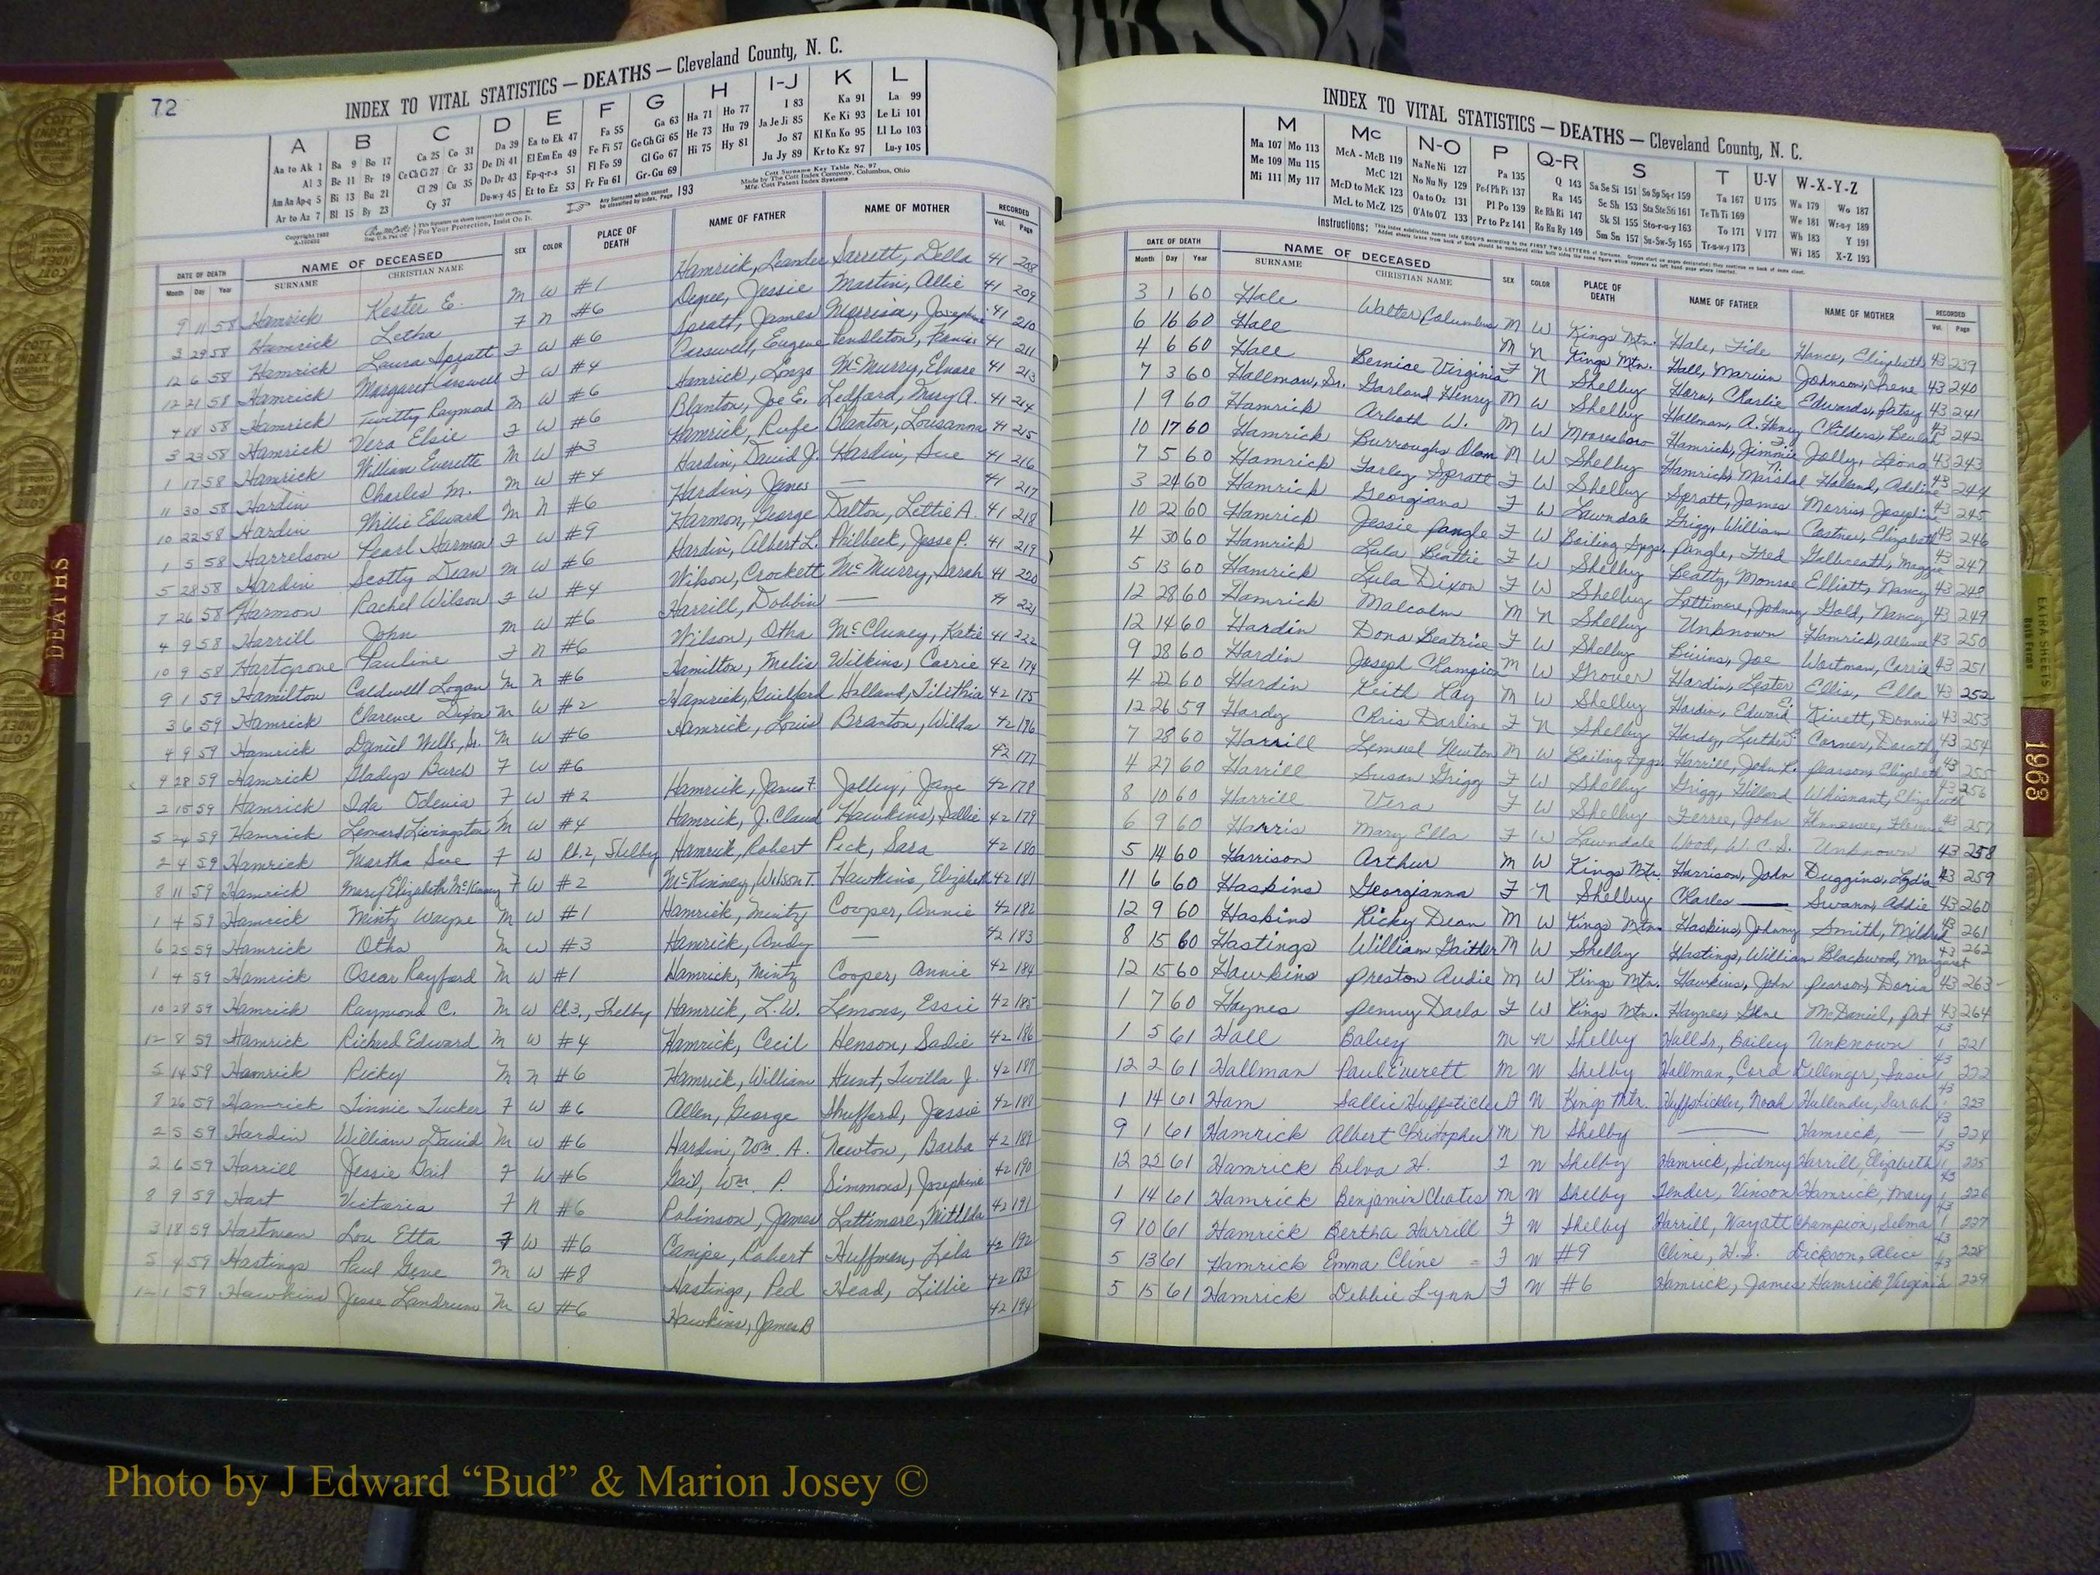 72
INDEX TO VITAL STATISTICS — DEATHS — Cleveland County, N. C.
A B C D E F G H I-J K L
Aa to Ak 1 Ba 9 Bo 17 Ca 25 Co 31 Da 39 Ea to Ek 47 Fa 55 Ga 63 Ha 71 Ho 77 I 83 Ka 91 La 99
Al 3 Be 11 Br 19 Ce Ch Ci 27 Cr 33 De Di 41 El Em En 49 Fe Fi 57 Ge Gh Gi 65 He 73 Hu 79 Ja Je Ji 85 Ke Ki 93 Le Li 101
Am An Ap-q 5 Bi 13 Bu 21 Cl 29 Cu 35 Do Dr 43 Ep-q-r-s 51 Fl Fo 59 Gl Go 67 Hi 75 Hy 81 Jo 87 Kl Kn Ko 95 Ll Lo 103
Ar to Az 7 Bl 15 By 23 Cy 37 Du-w-y 45 Et to Ez 53 Fr Fu 61 Gr-Gu 69 Ju Jy 89 Kr to Kz 97 Lu-y 105
Any Surname which cannot be classified by index, Page 193
Cott Surname Key Table No. 97
Made by The Cott Index Company, Columbus, Ohio
Mfg. Cott Patent Index Systems
DATE OF DEATH NAME OF DECEASED SEX COLOR PLACE OF DEATH NAME OF FATHER NAME OF MOTHER RECORDED
Month Day Year SURNAME CHRISTIAN NAME Vol. Page
9 11 58 Hamrick Kester E. M W #1 Hamrick, Leander Sarrett, Della 41 208
3 29 58 Hamrick Letha F N #6 Degree, Jessie Martin, Allie 41 209
12 6 58 Hamrick Laura Spratt F W #6 Spratt, James Morrison, Josephine 41 210
12 21 58 Hamrick Margaret Carswell F W #4 Carswell, Eugene Pendleton, Fannie 41 211
4 18 58 Hamrick Twitty Raymond M W #6 Hamrick, Lonzo McMurry, Elnore 41 213
3 23 58 Hamrick Vera Elsie F W #6 Blanton, Joe E. Ledford, Mary A. 41 214
1 17 58 Hamrick William Everette M W #3 Hamrick, Rufe Blanton, Lousanna 41 215
11 30 58 Hardin Charles M. M W #4 Hardin, David J. Hardin, Sue 41 216
10 22 58 Hardin Willie Edward M N #6 Hardin, James — 41 217
1 5 58 Harrelson Pearl Harmon F W #9 Harmon, George Dalton, Lettie A. 41 218
5 28 58 Hardin Scotty Dean M W #6 Hardin, Albert L. Philbeck, Jesse P. 41 219
7 26 58 Harmon Rachel Wilson F W #4 Wilson, Crockett McMurry, Sarah 41 220
4 9 58 Harrill John M W #6 Harrill, Dobbin — 41 221
10 9 58 Hartgrove Pauline F N #6 Wilson, Otha McCluney, Katie 41 222
9 1 59 Hamilton Caldwell Logan M N #6 Hamilton, Melis Wilkins, Carrie 42 174
3 6 59 Hamrick Clarence Dixon M W #2 Hamrick, Guilford Holland, Tilithia 42 175
4 9 59 Hamrick Daniel Webb, Sr. M W #6 Hamrick, Louis Branton, Wilda 42 176
9 28 59 Hamrick Gladys Burch F W #6 42 177
2 15 59 Hamrick Ida Odenia F W #2 Hamrick, James F. Jolley, Jane 42 178
5 24 59 Hamrick Lemard Livingston M W #4 Hamrick, J. Claud Hawkins, Sallie 42 179
2 4 59 Hamrick Martha Sue F W Rt. 2, Shelby Hamrick, Robert Peck, Sara 42 180
8 11 59 Hamrick Mary Elizabeth McKinney F W #2 McKinney, Wilson T. Hawkins, Elizabeth 42 181
1 4 59 Hamrick Mintz Wayne M W #1 Hamrick, Mintz Cooper, Annie 42 182
6 25 59 Hamrick Otha M W #3 Hamrick, Andy — 42 183
1 4 59 Hamrick Oscar Rayford M W #1 Hamrick, Mintz Cooper, Annie 42 184
10 28 59 Hamrick Raymond C. M W Rt 3., Shelby Hamrick, L.W. Lemons, Essie 42 185
12 8 59 Hamrick Richard Edward M W #4 Hamrick, Cecil Henson, Sadie 42 186
5 14 59 Hamrick Ricky M N #6 Hamrick, William Hunt, Twilla J. 42 187
8 26 59 Hamrick Tinnie Tucker F W #6 Allen, George Shufford, Jessie 42 188
2 5 59 Hardin William David M W #6 Hardin, Wm. A. Newton, Barba 42 189
2 6 59 Harrill Jessie Gail F W #6 Gail, Wm. P. Simmons, Josephine 42 190
8 9 59 Hart Victoria F N #6 Robinson, James Lattimore, Mitilda 42 191
3 18 59 Hartman Lou Etta F W #6 Canipe, Robert Huffman, Lila 42 192
5 4 59 Hastings Paul Gene M W #8 Hastings, Ped Head, Lillie 42 193
12 1 59 Hawkins Jesse Landrum M W #6 Hawkins, James B 42 194
INDEX TO VITAL STATISTICS — DEATHS — Cleveland County, N. C.
M Mc N-O P Q-R S T U-V W-X-Y-Z
Ma 107 Mo 113 McA - McB 119 Na Ne Ni 127 Pa 135 Q 143 Sa Se Si 151 So Sp Sq-r 159 Ta 167 U 175 Wa 179 Wo 187
Me 109 Mu 115 McC 121 No Nu Ny 129 Pe-f Ph Pi 137 Ra 145 Sc Sh 153 Sta Ste Sti 161 Te Th Ti 169 We 181 Wr-u-y 189
Mi 111 My 117 McD to McK 123 Oa to Oz 131 Pl Po 139 Re Rh Ri 147 Sk Sl 155 Sto-r-u-y 163 To 171 V 177 Wh 183 Y 191
McL to McZ 125 O'A to O'Z 133 Pr to Pz 141 Ro Ru Ry 149 Sm Sn 157 Su-Sw-Sy 165 Tr-u-w-y 173 Wi 185 X-Z 193
DATE OF DEATH NAME OF DECEASED SEX COLOR PLACE OF DEATH NAME OF FATHER NAME OF MOTHER RECORDED
Month Day Year SURNAME CHRISTIAN NAME Vol. Page
3 1 60 Hale Walter Columbus M W Kings Mtn. Hale, Fide Hance, Elizabeth 43 239
6 16 60 Hall M N Kings Mtn. Hall, Marvin Johnson, Irene 43 240
4 6 60 Hall Bernice Virginia F N Shelby Horn, Charlie Edwards, Patsy 43 241
7 3 60 Hallman, Sr. Garland Henry M W Shelby Hallman, A. Henry Childers, Beulah 43 242
1 9 60 Hamrick Arboth W. M W Mooresboro Hamrick, Jimmie F. Jolly, Leona 43 243
10 17 60 Hamrick Burroughs Olam M W Shelby Hamrick, Marshal N. Holland, Adeline 43 244
7 5 60 Hamrick Farley Spratt F W Shelby Spratt, James Morris, Josephine 43 245
3 24 60 Hamrick Georgiana F W Lawndale Grigg, William Costner, Elizabeth 43 246
10 22 60 Hamrick Jessie Pangle F W Boiling Spgs. Pangle, Fred Galbreath, Maggie 43 247
4 30 60 Hamrick Lula Beattie F W Shelby Beatty, Monroe Elliott, Nancy 43 248
5 13 60 Hamrick Lula Dixon F W Shelby Lattimore, Johnny Gold, Nancy 43 249
12 28 60 Hamrick Malcolm M N Shelby Unknown Hamrick, 43 250
12 14 60 Hardin Dona Beatrice F W Shelby Bivins, Joe Wortman, Carrie 43 251
9 28 60 Hardin Joseph Champion M W Grover Hardin, Lester Ellis, Ella 43 252
4 22 60 Hardin Keith Ray M W Shelby Hardin, Edward E. Kivett, Donnie 43 253
12 26 59 Hardy Chris Darline F N Shelby Hardy, Luther L. Corner, Dorothy 43 254
7 28 60 Harrill Lemuel Newton M W Boiling Spgs. Harrill, John R. Pearson, Elizabeth 43 255
4 27 60 Harrill Susan Grigg F W Shelby Grigg, Hillard Whisnant, Elizabeth 43 256
8 10 60 Harrill Vera F W Shelby Ferree, John Hennessee, Florence 43 257
6 9 60 Harris Mary Ella F W Lawndale Wood, W. C. S. Unknown 43 258
5 14 60 Harrison Arthur M W Kings Mtn. Harrison, John Duggins, Lydia 43 259
11 6 60 Haskins Georgianna F N Shelby Charles — Swann, Addie 43 260
12 9 60 Haskins Ricky Dean M W Kings Mtn. Haskins, Johnny Smith, Mildred 43 261
8 15 60 Hastings William Gaither M W Shelby Hastings, William Blackwood, Margaret 43 262
12 15 60 Hawkins Preston Audie M W Kings Mtn. Hawkins, John Pearson, Doria 43 263
1 7 60 Haynes Penny Darla F W Kings Mtn. Haynes, Gene McDaniel, Pat 43 264
1 5 61 Hall Balrey M N Shelby Hall Sr., Bailey Unknown 43 221
12 2 61 Hallman Paul Everett M W Shelby Hallman, Cord Dellinger, Susie 43 222
1 14 61 Ham Sallie Huffsticler F W Kings Mtn. Huffstickler, Noah Hallender, Sarah 43 223
9 1 61 Hamrick Albert Christopher M N Shelby — Hamrick, — 43 224
12 22 61 Hamrick Belva H. F W Shelby Hamrick, Sidney Harrill, Elizabeth 43 225
1 14 61 Hamrick Benjamin Cleates M W Shelby Tender, Vinson Hamrick, Mary 43 226
9 10 61 Hamrick Bertha Harrill F W Shelby Harrill, Wayatt Champion, Selma 43 227
5 13 61 Hamrick Emma Cline F W #9 Cline, H.S. Dickson, Alice 43 228
5 15 61 Hamrick Debbie Lynn F W #6 Hamrick, James Hamrick, Virginia 43 229
DEATHS
EXTRA SHEETS
Both Faces
1963
Photo by J Edward “Bud” & Marion Josey ©